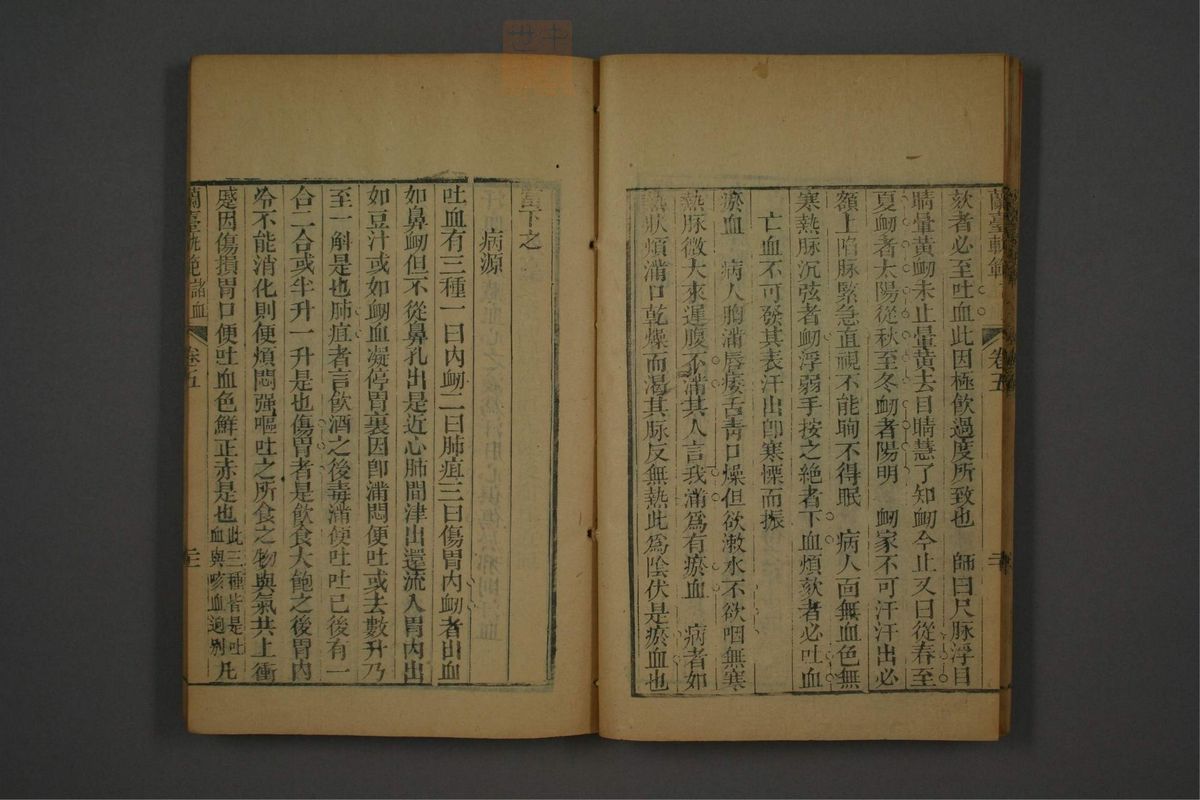 蘭臺軌範
卷五
二
欬者必至吐血此因極飲過度所致也　師曰尺脉浮目
睛暈黃衂未止暈黃去目睛慧了知衂今止又曰從春至
夏衂者太陽從秋至冬衂者陽明　衂家不可汗汗出必
額上陷脉緊急直視不能眴不得眠　病人面無血色無
寒熱脉沉弦者衂浮弱手按之絶者下血煩欬者必吐血
亡血不可發其表汗出卽寒慄而振
瘀血　病人胸滿唇痿舌青口燥但欲漱水不欲咽無寒
熱脉微大來遲腹不滿其人言我滿爲有瘀血　病者如
熱狀煩滿口乾燥而渴其脉反無熱此爲陰伏是瘀血也
當下之
病源
吐血有三種一曰內衂二曰肺疽三曰傷胃內衂者出血
如鼻衂但不從鼻孔出是近心肺間津出還流入胃內出
如豆汁或如衂血凝停胃裏因卽滿悶便吐或去數升乃
至一斛是也肺疽者言飲酒之後毒滿便吐吐已後有一
合二合或半升一升是也傷胃者是飲食大飽之後胃內
冷不能消化則便煩悶强嘔吐之所食之物與氣共上衝
蹙因傷損胃口便吐血色鮮正赤是也此三種皆是吐血與咳血逈别凡
蘭臺軌範　諸血
卷五